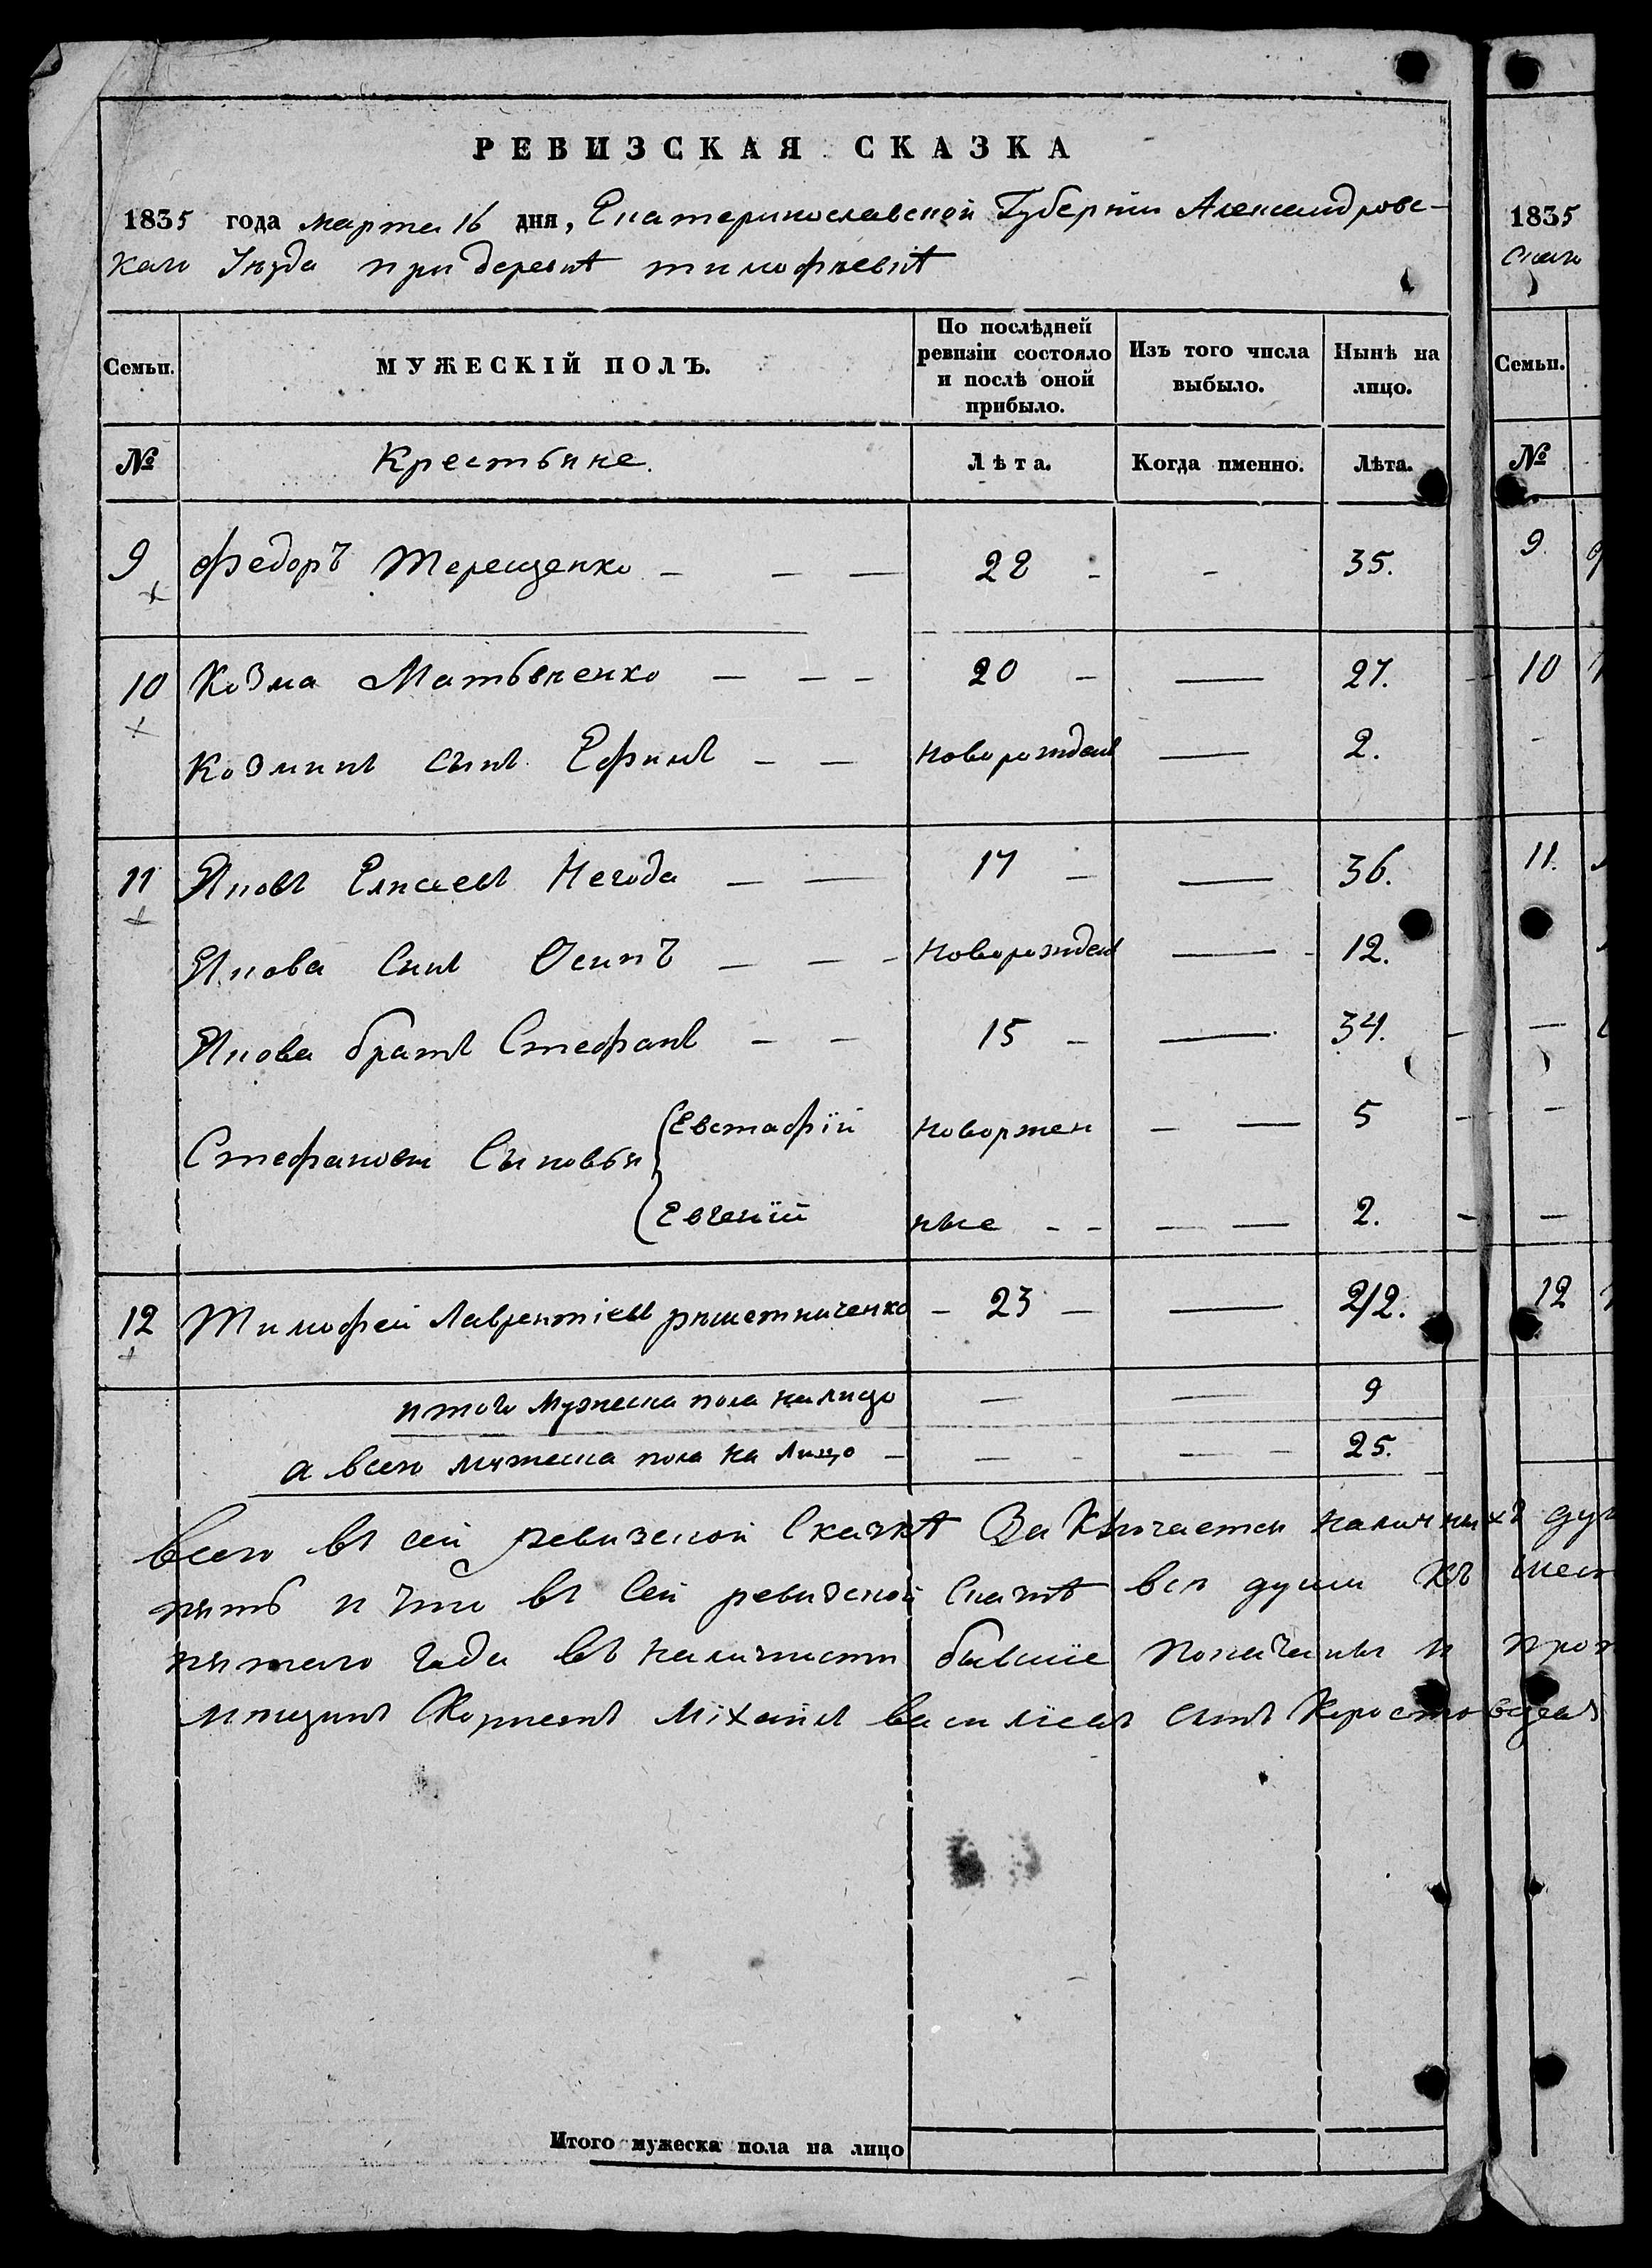 РЕВИЗСКАЯ СКАЗКА
1835 года марта 16 дня, Екатеринославской Губернiи Александровс-
каго Уѣзда при деревнѣ тимофѣевкѣ
1835
скаго
Семьи.
МУЖЕСКІЙ ПОЛЪ.
По послѣдней ревизіи состояло и послѣ оной прибыло.
Изъ того числа выбыло.
Нынѣ на лицо.
Семьи.
№ Крестьяне. Лѣта. Когда именно. Лѣта. №
9 Федоръ Терещенко — — — 28 - - 35. 9.
10 Козма Матвѣенко — — — 20 - — 27. 10
Козминъ сынъ Ефимъ — — новорожденъ — 2.
11 Яковъ Елисеевъ Негода — — 17 — — 36. 11.
Якова сынъ Осипъ — — - новорожден — 12.
Якова братъ Стефанъ — — 15 - — 34. —
Стефановы Сыновья
Евстафій новоржен — — 5 —
Евгеній ные - - — — 2. —
12 Тимофей Лаврентіевъ рѣшетниченко - 23 — — 2/2. 12
итого мужеска пола налицо — — 9
а всего мужеска пола на лицо — — — 25.
всего въ сей ревизской Сказкѣ Заключается наличныхъ душ
пять и что въ сей ревизской сказкѣ всѣ души
пятого года въ наличности бывшіе показаны и
Корнетъ Міхаилъ васильевъ сынъ
Итого мужеска пола на лицо